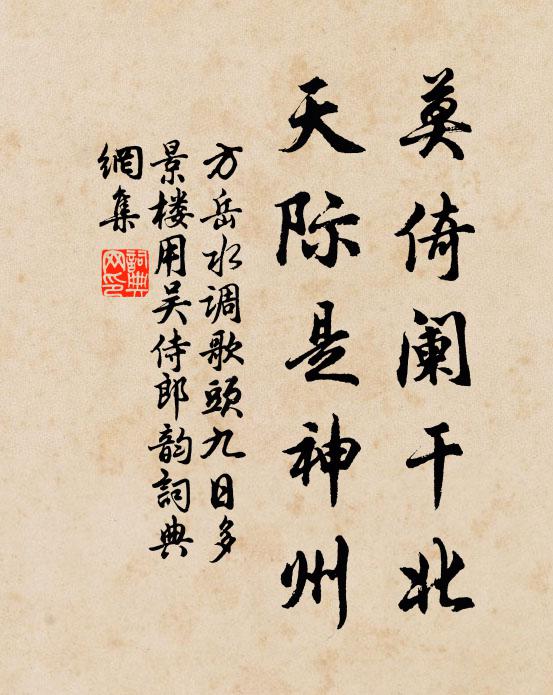 莫倚阑干北
天际是神州
方岳水调歌頭九日多
景楼用吴侍郎韵詞典
網集
詞典网印